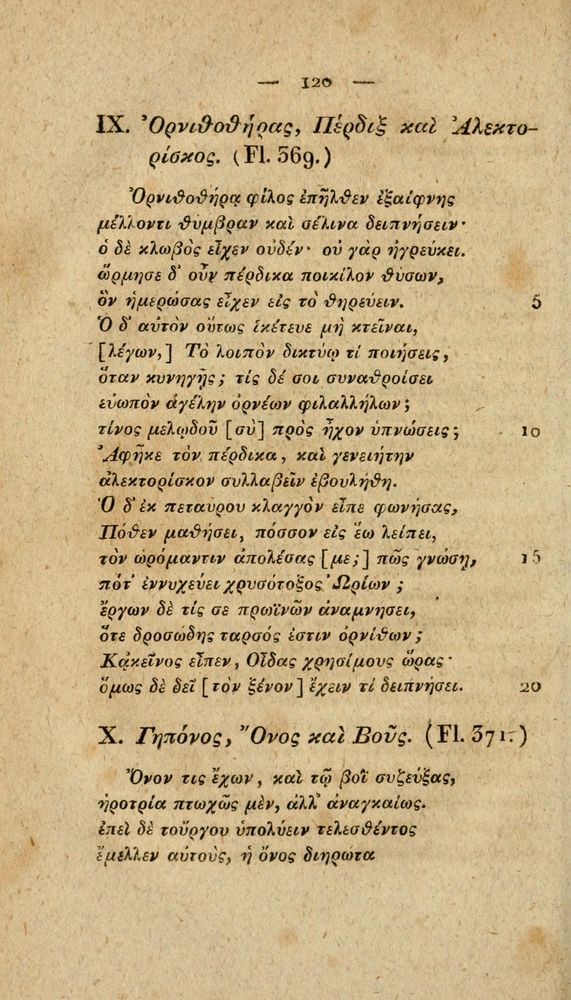 — 120 —
IX. Ὀρνιθοθήρας, Πέρδιξ καὶ Ἀλεκτο-
ρίσκος. (Fl. 369.)
Ὀρνιθοθήρᾳ φίλος ἐπῆλθεν ἐξαίφνης
μέλλοντι θύμβραν καὶ σέλινα δειπνήσειν·
ὁ δὲ κλωβὸς εἶχεν οὐδέν· οὐ γὰρ ἠγρεύκει.
ὥρμησε δ' οὖν πέρδικα ποικίλον θύσων,
ὃν ἡμερώσας εἶχεν εἰς τὸ θηρεύειν. 5
Ὁ δ' αὐτὸν οὕτως ἱκέτευε μὴ κτεῖναι,
[λέγων,] Τὸ λοιπὸν δικτύῳ τί ποιήσεις,
ὅταν κυνηγῇς; τίς δέ σοι συναθροίσει
εὐωπὸν ἀγέλην ὀρνέων φιλαλλήλων;
τίνος μελῳδοῦ [σὺ] πρὸς ἦχον ὑπνώσεις; 10
Ἀφῆκε τὸν πέρδικα, καὶ γενειήτην
ἀλεκτορίσκον συλλαβεῖν ἐβουλήθη.
Ὁ δ' ἐκ πεταύρου κλαγγὸν εἶπε φωνήσας,
Πόθεν μαθήσει, πόσσον εἰς ἕω λείπει,
τὸν ὡρόμαντιν ἀπολέσας [με;] πῶς γνώσῃ, 15
πότ' ἐννυχεύει χρυσότοξος Ὠρίων;
ἔργων δὲ τίς σε πρωϊνῶν ἀναμνήσει,
ὅτε δροσώδης ταρσός ἐστιν ὀρνίθων;
Κἀκεῖνος εἶπεν, Οἶδας χρησίμους ὥρας·
ὅμως δὲ δεῖ [τὸν ξένον] ἔχειν τί δειπνήσει. 20
X. Γηπόνος, Ὄνος καὶ Βοῦς. (Fl. 371.)
Ὄνον τις ἔχων, καὶ τῷ βοῒ συζεύξας,
ἠροτρία πτωχῶς μὲν, ἀλλ' ἀναγκαίως.
ἐπεὶ δὲ τοὔργου ὑπολύειν τελεσθέντος
ἔμελλεν αὐτοὺς, ἡ ὄνος διηρώτα